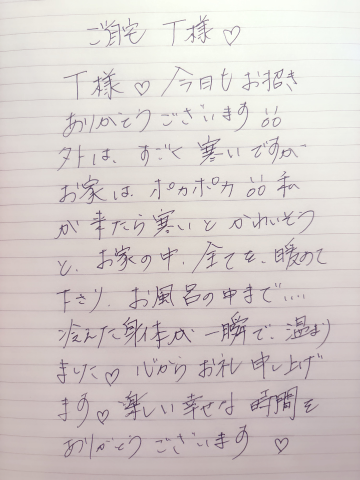 ご自宅 T様♡
T様♡今日もお招き
ありがとうございます
外は、すごく寒いですが
お家は、ポカポカ 私
が来たら寒いとかわいそう
と、お家の中、全てを、暖めて
下さり、お風呂の中まで....
冷えた身体が一瞬で、温まり
ました♡心からお礼申し上げ
ます♡楽しい幸せな時間を
ありがとうございます ♡